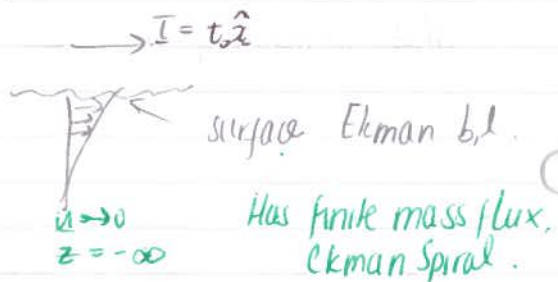 τ = τ₀ x̂
surface Ekman b.l.
u → 0
Has finite mass flux,
z = -∞
Ekman Spiral.